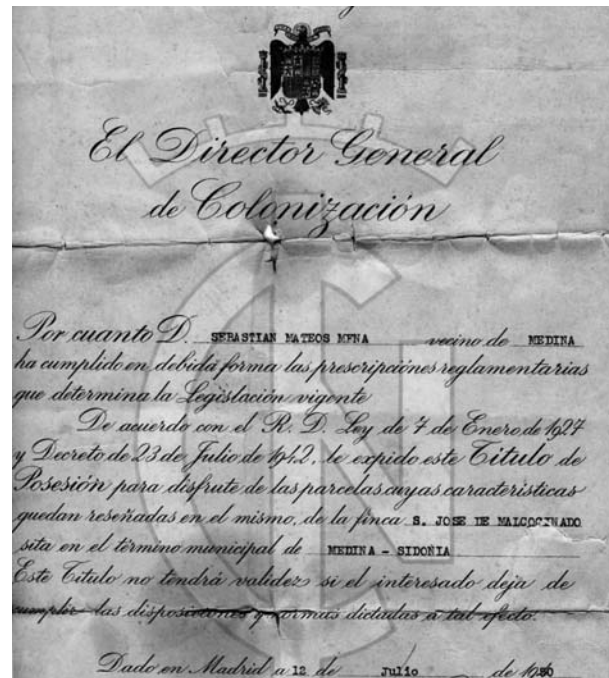 El Director General
de Colonización
Por cuanto D. SEBASTIAN MATEOS MENA vecino de MEDINA
ha cumplido en debida forma las prescripciónes reglamentarias
que determina la Legislación vigente
De acuerdo con el R. D. Ley de 7 de Enero de 1927
y Decreto de 23 de Julio de 1942, le expido este Titulo de
Posesión para disfrute de las parcelas cuyas caracteristicas
quedan reseñadas en el mismo, de la finca S. JOSE DE MALCOCINADO
sita en el término municipal de MEDINA - SIDONIA
Este Titulo no tendrá validez si el interesado deja de
cumplir las disposiciones y normas dictadas a tal efecto.
Dado en Madrid a 12 de Julio de 1950